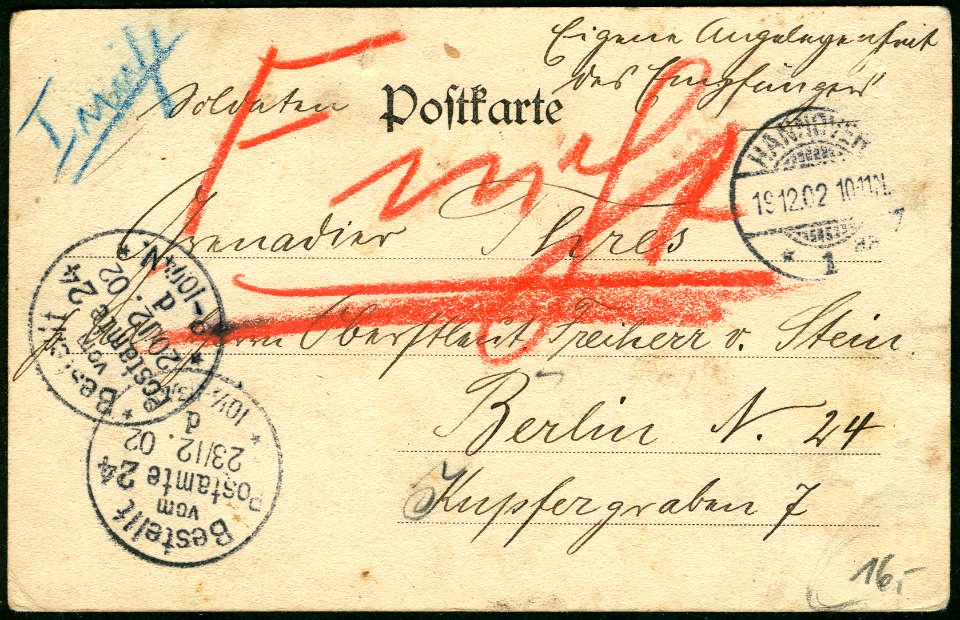 Eigene Angelegenheit
des Empfängers
Soldaten
Postkarte
HANNOVER
19.12.02 10-11N.
* 1
Grenadier Thres
Herrn Oberstleut. Freiherr v. Stein
Berlin N. 24
Kupfergraben 7
Bestellt
vom
Postamte 24
20/12. 02
Bestellt
vom
Postamte 24
23/12. 02
16,-